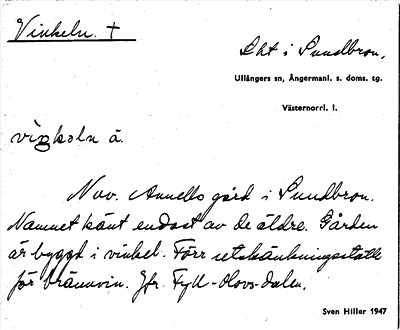 Vinkeln. †
Lht i Sundbron.
Ullångers sn, Ångermanl. s. doms. tg.
Västernorrl. l.
vìŋkəln ä.
Nov. Annells gård i Sundbron.
Namnet känt endast av de äldre. Gården
är byggd i vinkel. Förr utskänkningsställe
för brännvin. Jfr. Fyll-Olovs-dalen.
Sven Hiller 1947